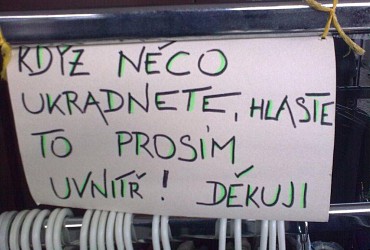 KDYŽ NĚCO
UKRADNETE, HLASTE
TO PROSÍM
UVNITŘ! DĚKUJI